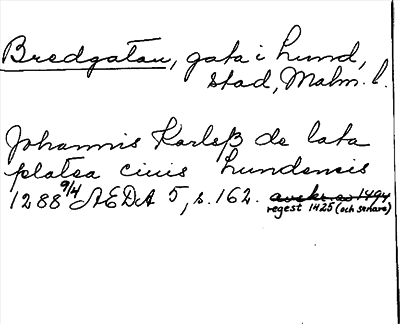 Bredgatan, gata i Lund,
stad, Malm. l.
Johannis Karlsß de lata
platea ciuis Lundensis
1288 9/4 ÆDA 5, s. 162. avskr. av 1494
regest 1425 (och senare)